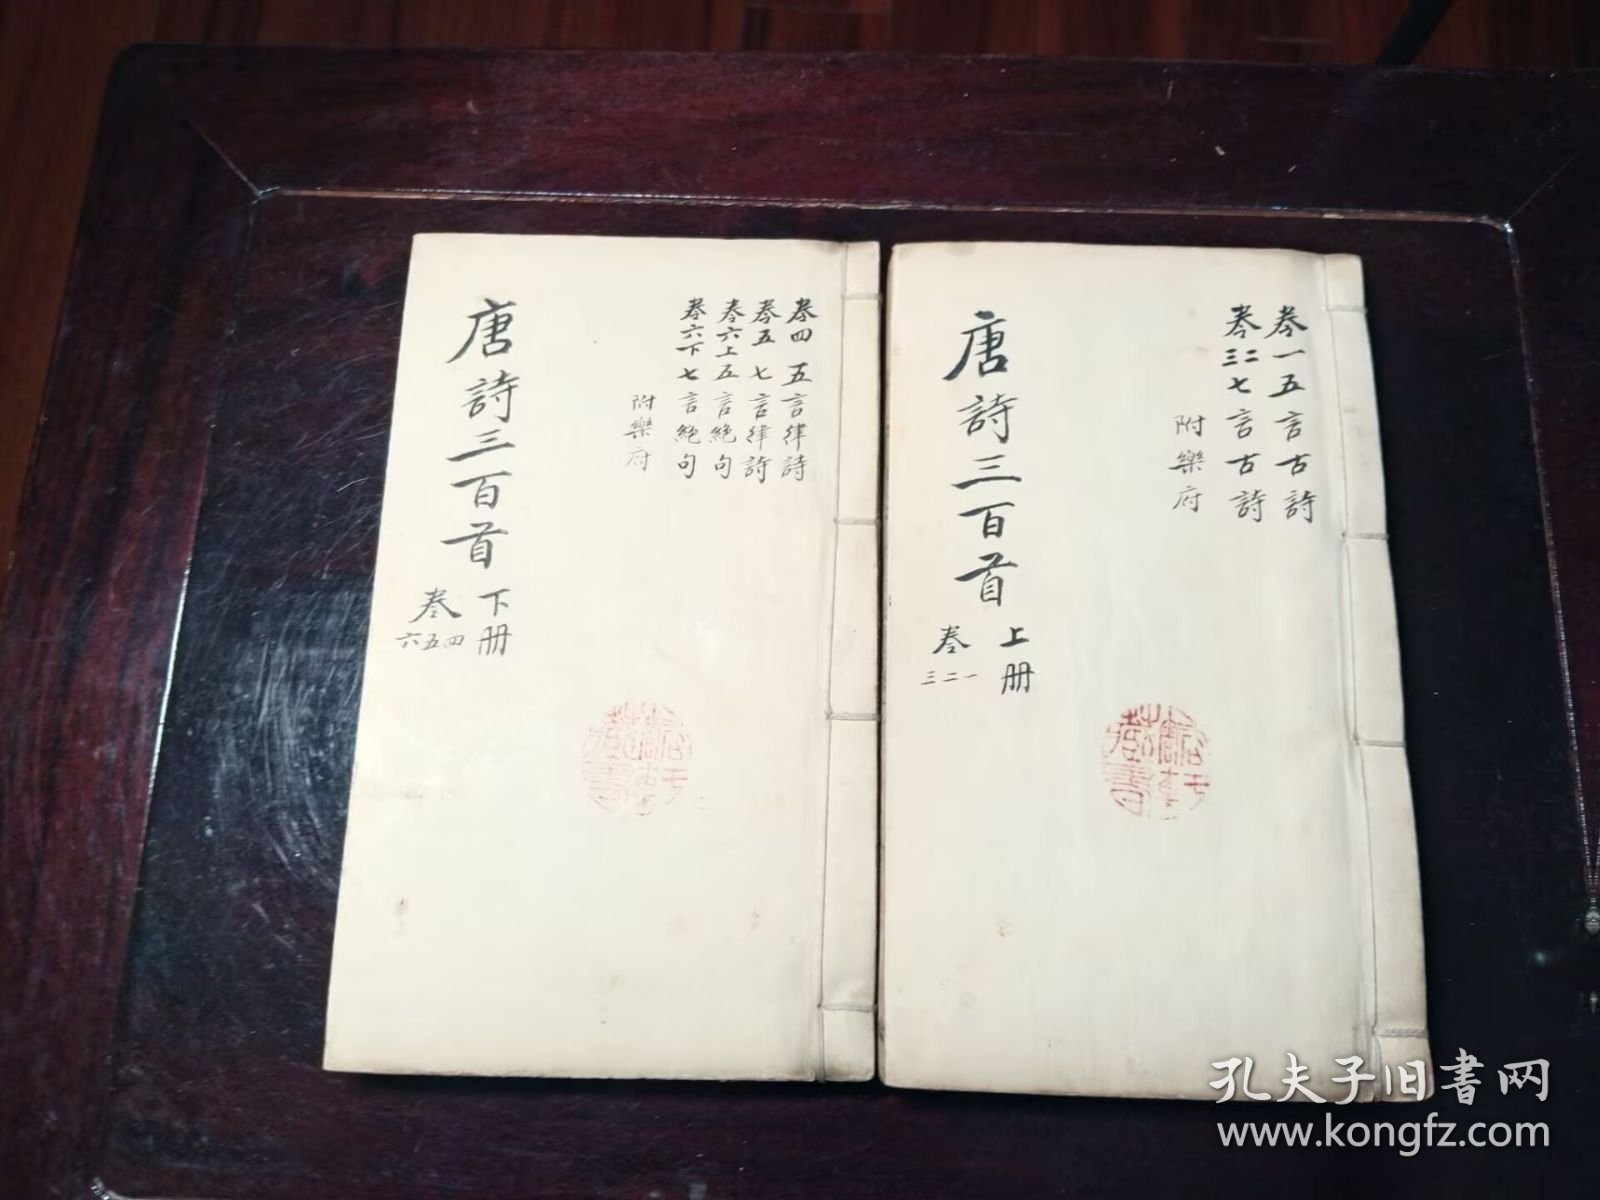 卷一五言古詩
卷二三七言古詩
附樂府
唐詩三百首
上册
卷一二三
卷四 五言律詩
卷五 七言律詩
卷六上五言絶句
卷六下七言絶句
附樂府
唐詩三百首
下册
卷四五六
孔夫子旧書网
www.kongfz.com